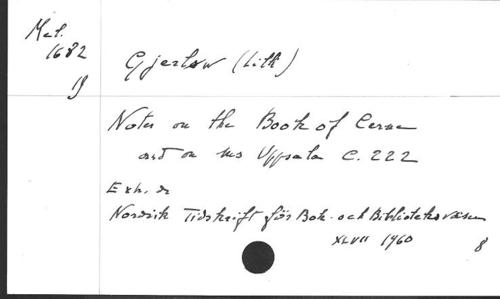 Mel.
1682
Gjerløw (Lilli)
Notes on the Book of Cerne
and on ms Uppsala C. 222
Extr. de
Nordisk Tidskrift för Bok- och Biblioteksväsen
XLVII 1960
8